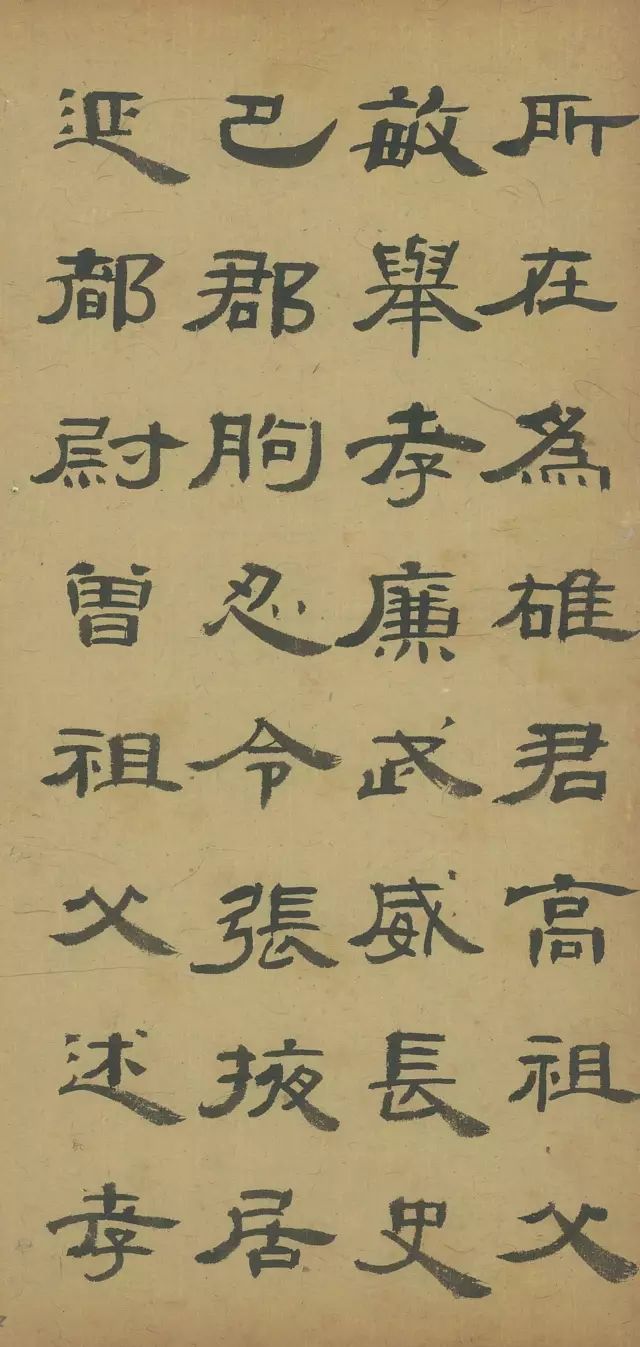 所在爲雄君高祖父
敏舉孝廉武威長史
巴郡朐忍令張掖居
延都尉曾祖父述孝